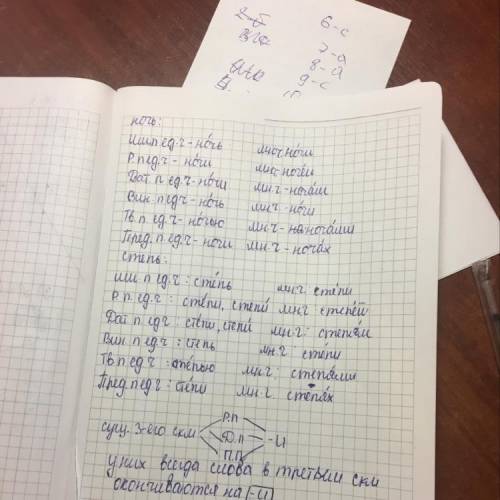 2-б 6-с
3-а 7-а
8-а
9-с
ночь:
Им.п ед.ч - но́чь мн.ч но́чи
Р.п ед.ч - но́чи мн.ч ноче́й
Дат.п ед.ч - но́чи мн.ч - ноча́м
Вин.п ед.ч - но́чь мн.ч - но́чи
Тв п ед.ч - но́чью мн.ч - ноча́ми
Пред.п ед.ч - ночи мн.ч - ноча́х
степь:
им п ед.ч : сте́пь мн.ч. сте́пи
Р.п ед.ч : сте́пи, степи́ мн.ч степе́й
Дат п ед.ч : сте́пи, степи́ мн.ч: степя́м
Вин п ед.ч : степь мн.ч сте́пи
Тв п ед.ч : сте́пью мн.ч степя́ми
Пред.п ед.ч : сте́пи мн.ч. степя́х
Р.п
сущ. 3-его скл Д.п -и
П.п
у них всегда слова в третьем скл
оканчиваются на -и